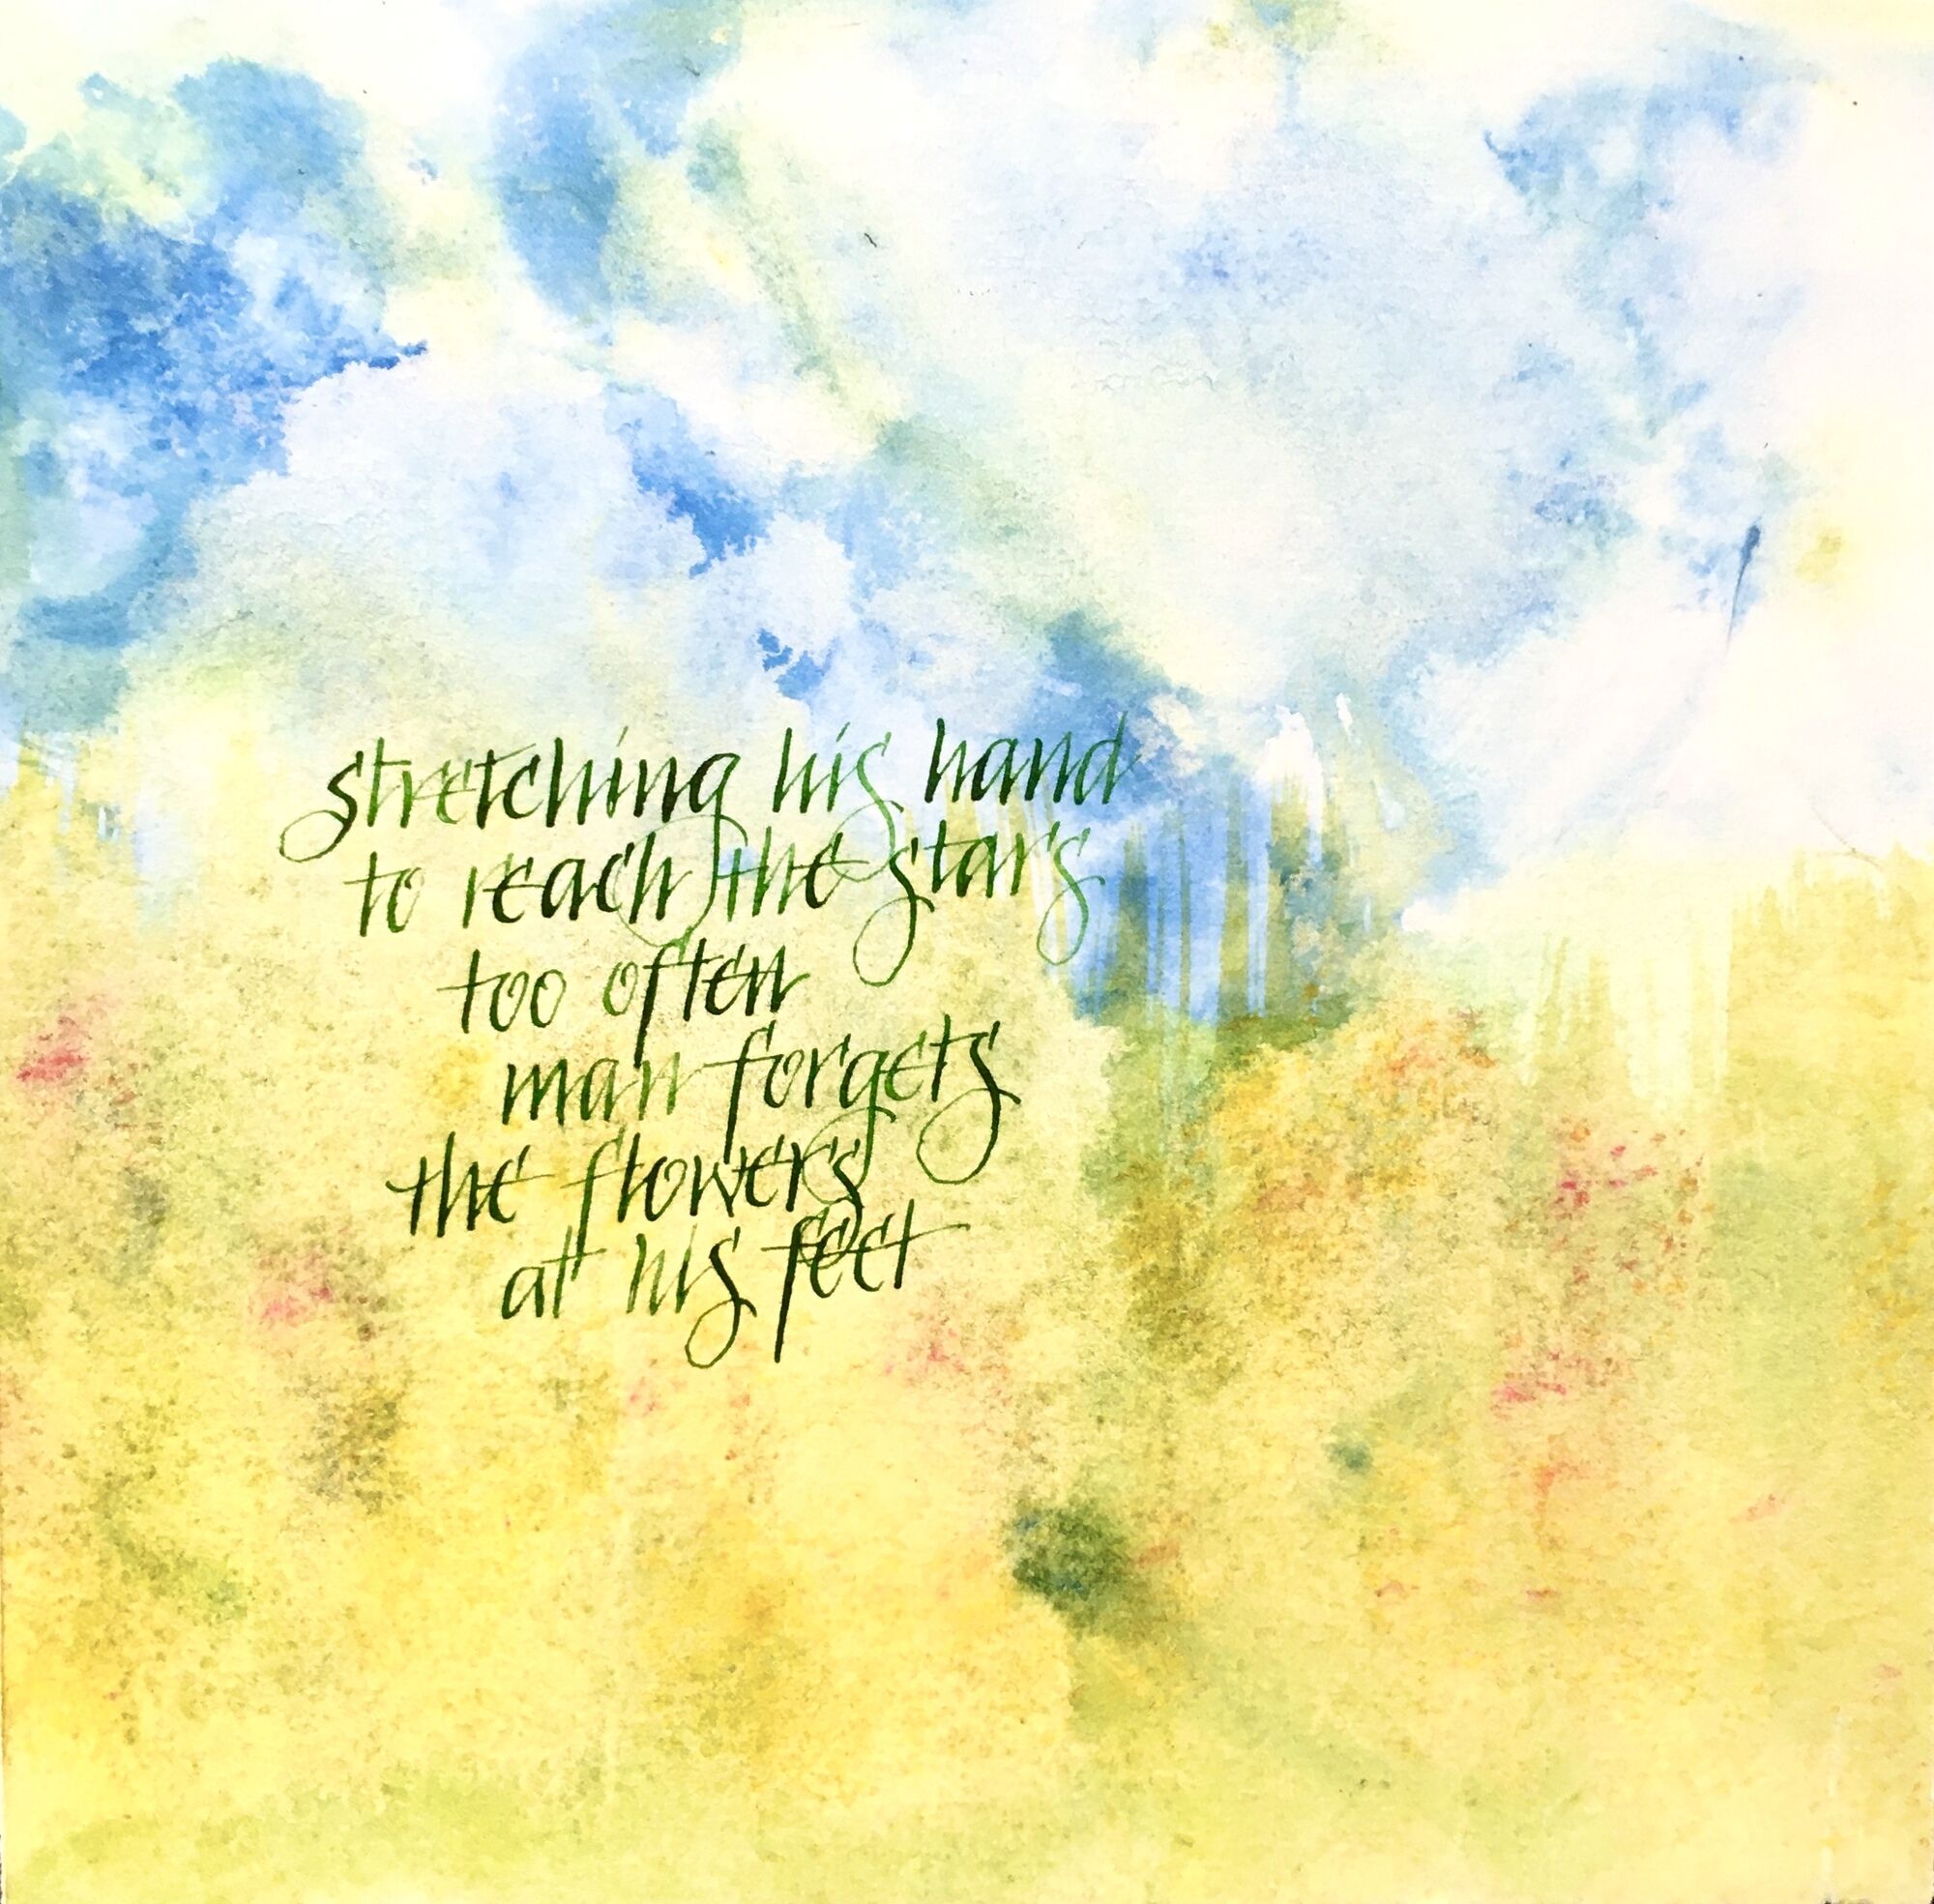 stretching his hand
to reach the stars
too often
man forgets
the flowers
at his feet